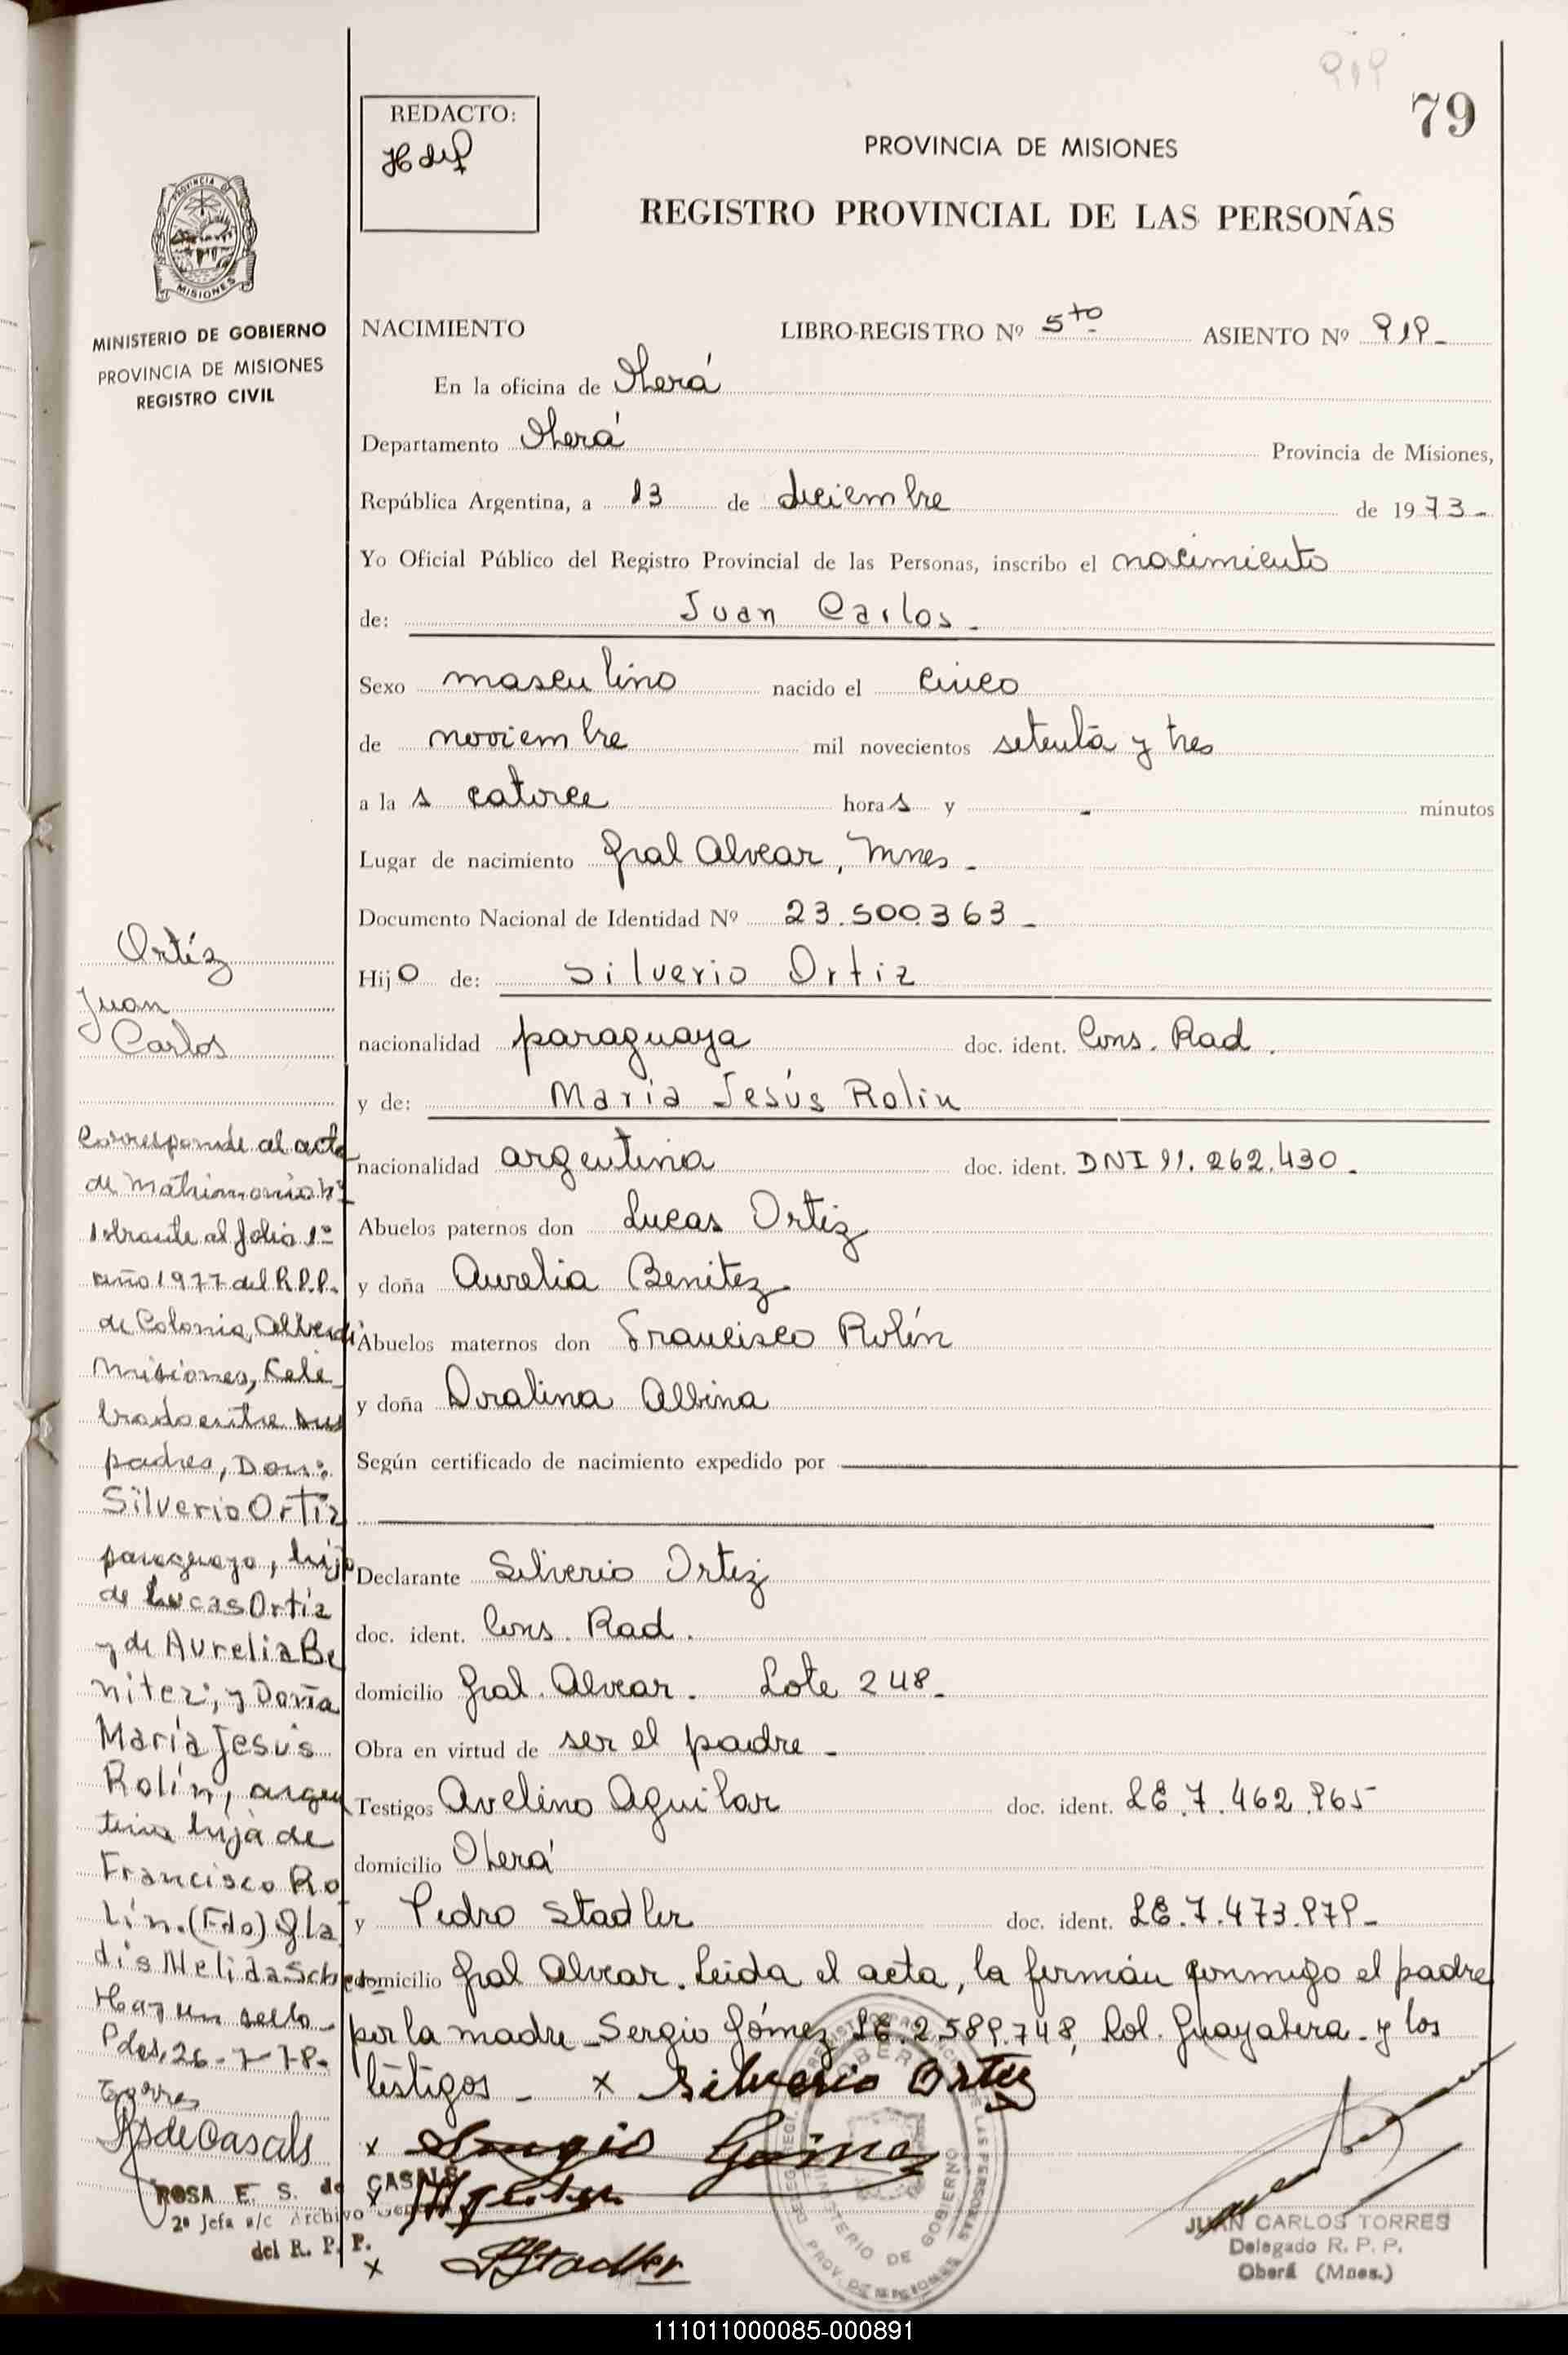 919
79
REDACTO:
PROVINCIA DE MISIONES
REGISTRO PROVINCIAL DE LAS PERSONAS
PROVINCIA DE
MISIONES
MINISTERIO DE GOBIERNO
PROVINCIA DE MISIONES
REGISTRO CIVIL
NACIMIENTO LIBRO-REGISTRO Nº 5to ASIENTO Nº 919-
En la oficina de Oberá
Departamento Oberá Provincia de Misiones,
República Argentina, a 13 de diciembre de 1973-
Yo Oficial Público del Registro Provincial de las Personas, inscribo el nacimiento
de: Juan Carlos-
Sexo masculino nacido el cinco
de noviembre mil novecientos setenta y tres
a las catorce horas y - minutos
Lugar de nacimiento Gral Alvear, Mnes-
Documento Nacional de Identidad Nº 23.500.363-
Hijo de: Silverio Ortiz
nacionalidad paraguaya doc. ident. Cons. Rad.
y de: María Jesús Rolin
nacionalidad argentina doc. ident. DNI 11.262.430.
Abuelos paternos don Lucas Ortiz
y doña Aurelia Benitez
Abuelos maternos don Francisco Rolín
y doña Doralina Albina
Según certificado de nacimiento expedido por
Declarante Silverio Ortiz
doc. ident. Cons. Rad.
domicilio Gral. Alvear. Lote 248-
Obra en virtud de ser el padre-
Testigos Avelino Aguilar doc. ident. LE.7.462.965
domicilio Oberá
y Pedro Stadler doc. ident. LE.7.473.979-
domicilio Gral Alvear. Leida el acta, la firman conmigo el padre
por la madre-Sergio Gómez LE.2.589.748, Col. Guayabera-y los
testigos- x Silverio Ortiz
x Sergio Gómez
x
x PStadler
Ortíz
Juan
Carlos
Corresponde al acta
de Matrimonio nº
1 obrante al folio 1º
año 1977 del R.P.P.
de Colonia Alberdi
Misiones, Cele-
brado entre sus
padres, Don:
Silverio Ortiz
paraguayo, hijo
de Lucas Ortiz
y de Aurelia Be
nitez; y Doña
María Jesús
Rolín, argen
tina hija de
Francisco Ro
lín. (Fdo) Gla
dis Nelida
Hay un sello-
Pdas, 26-7-78-
Torres
RSdeCasals
ROSA E. S. de CASALS
2ª Jefa a/c Archivo General
del R. P. P.
MINISTERIO DE GOBIERNO
PROV. DE MISIONES
JUAN CARLOS TORRES
Delegado R. P. P.
Oberá (Mnes.)
111011000085-000891